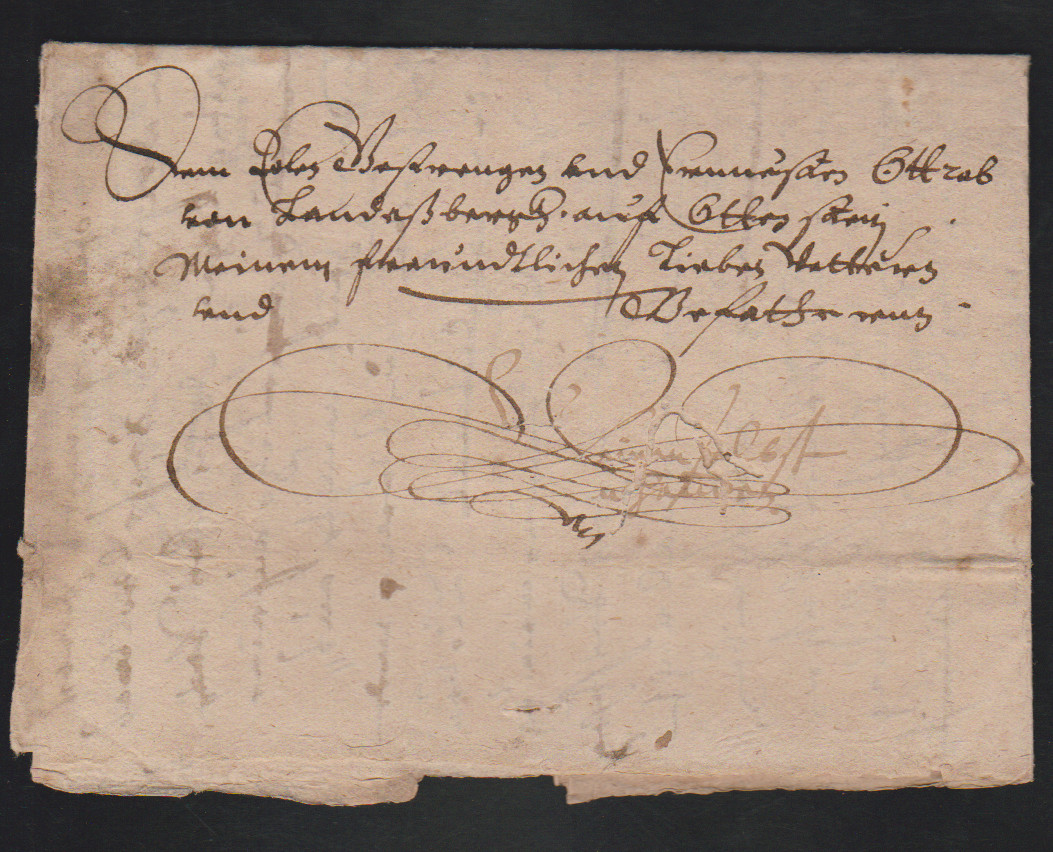 Dem Edlen Gestrengen vnd Ernuesten Ottrab
von Landeßbergh. auff Ottenstein
Meinem freundtlichen Lieben Vetteren
vnd Gefatheren